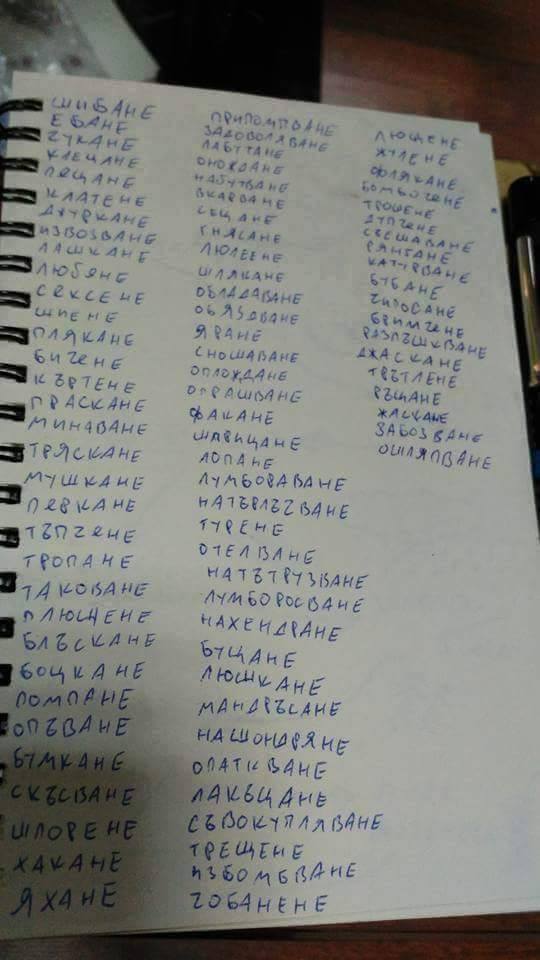 ШИБАНЕ
ЕБАНЕ
ЧУКАНЕ
КЛЕЦАНЕ
ПЕЦАНЕ
КЛАТЕНЕ
ДЖУРКАНЕ
ИЗВОЗВАНЕ
ЛАШКАНЕ
ЛЮБЯНЕ
СЕКСЕНЕ
ШИЕНЕ
ПЛЯКАНЕ
БИЧЕНЕ
КЪРТЕНЕ
ПРАСКАНЕ
МИНАВАНЕ
ТРЯСКАНЕ
МУШКАНЕ
ПЕРКАНЕ
ТЪПЧЕНЕ
ТРОПАНЕ
ТАКОВАНЕ
ПЛЮЩЕНЕ
БЛЪСКАНЕ
БОЦКАНЕ
ПОМПАНЕ
ОПЪВАНЕ
БУМКАНЕ
СКЪСВАНЕ
ШПОРЕНЕ
ХАКАНЕ
ЯХАНЕ
ПРИПОМПВАНЕ
ЗАДОВОЛЯВАНЕ
ЛАБУТАНЕ
ОНОЖДАНЕ
НАБУТВАНЕ
ВКАРВАНЕ
СЕЦАНЕ
ГНЯСАНЕ
ЛЮЛЕЕНЕ
ШЛЯКАНЕ
ОБЛАДАВАНЕ
ОБЯЗДВАНЕ
ЯРАНЕ
СНОШАВАНЕ
ОПЛОЖДАНЕ
ОПРАШВАНЕ
ФАКАНЕ
ШПРИЦАНЕ
ЛОПАНЕ
ЛУМБОРАВАНЕ
НАТЪРЛЪЗВАНЕ
ТУРЕНЕ
ОТЕЛВАНЕ
НАТЪТРУЗВАНЕ
ЛУМБОРОСВАНЕ
НАХЕНДРАНЕ
БУЦАНЕ
ЛЮШКАНЕ
МАНДРЪСАНЕ
НАШОНДРЯНЕ
ОПАТКВАНЕ
ЛАКЪЦАНЕ
СЪВОКУПЛЯВАНЕ
ТРЕЩЕНЕ
ИЗБОМБВАНЕ
ЧОБАНЕНЕ
ЛЮЩЕНЕ
ЖУЛЕНЕ
ФЛЯКАНЕ
БОМБЮЧЕНЕ
ТРОШЕНЕ
ДУПЧЕНЕ
СВЕШАВАНЕ
РЯНГАНЕ
КАТУРВАНЕ
БУБАНЕ
ЧИРОСАНЕ
БРИМЧЕНЕ
РАЗПЪШКВАНЕ
ДЖАСКАНЕ
ТРЪТЛЕНЕ
РЪЩАНЕ
ЖАСКАНЕ
ЗАБОЗВАНЕ
ОШЛЯПВАНЕ